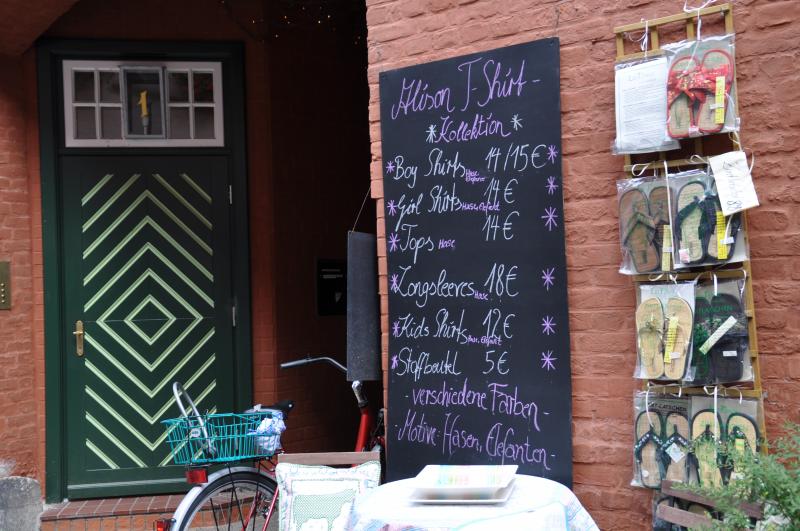 1
Alison T-Shirt -
Kollektion
Boy Shirts Hase Elefant 14/15€
Girl Shirts Hase, Elefant 14€
Tops Hase 14€
Longsleeves Hase 18€
Kids Shirts Hase, Elefant 12€
Stoffbeutel 5€
- verschiedene Farben -
- Motive: Hasen, Elefanten -